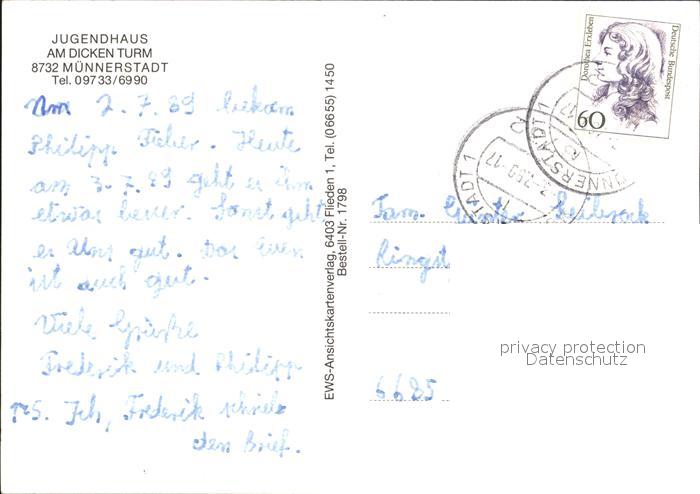 JUGENDHAUS
AM DICKEN TURM
8732 MÜNNERSTADT
Tel. 09733/6990
Am 2.7.89 bekam
Philipp Fieber. Heute
am 3.7.89 geht es ihm
etwas besser. Sonst geht
es Uns gut. Das Essen
ist auch gut.
Viele Grüße
Frederik und Philipp
PS. Ich, Frederik schrieb
den Brief.
EWS-Ansichtskartenverlag, 6403 Flieden 1, Tel. (06655) 1450
Bestell-Nr. 1798
Dorothea Erxleben
Deutsche Bundespost
60
MÜNNERSTADT 1
STADT 1
Fam.
Ringst
6685
privacy protection
Datenschutz